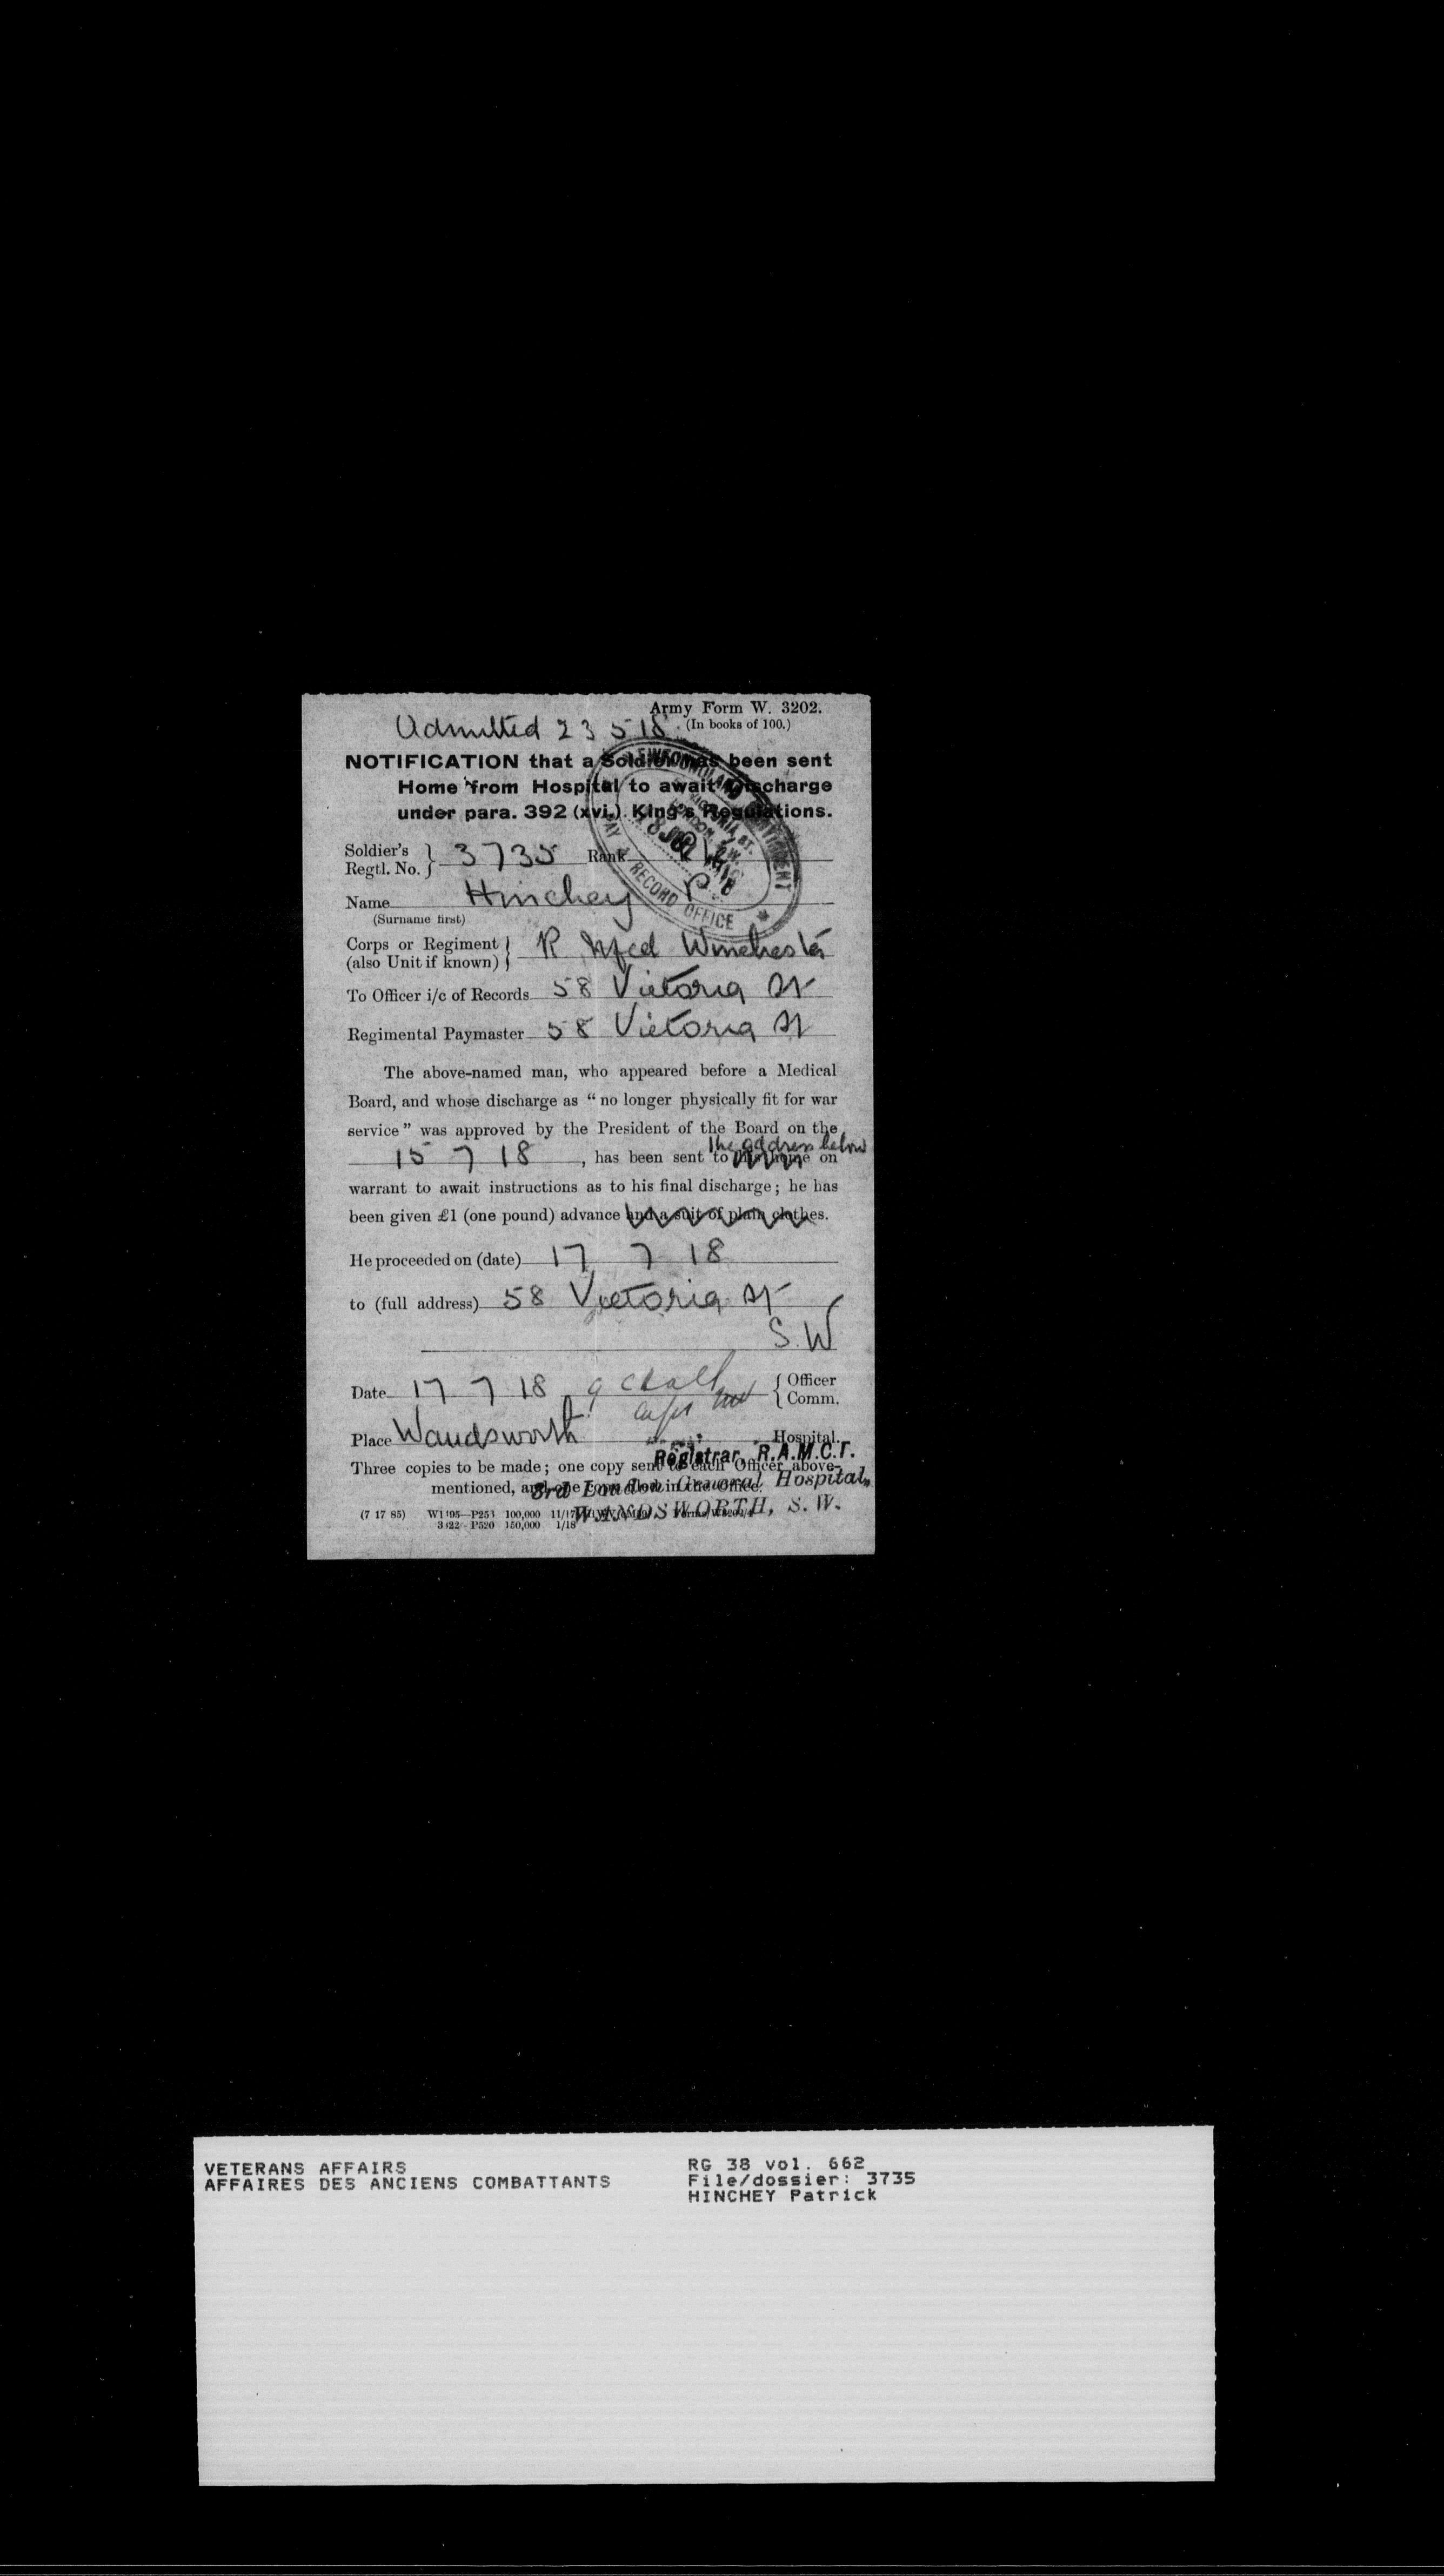 Army Form W. 3202.
(In books of 100.)
Admitted 23 5 18
NOTIFICATION that a Soldier has been sent
Home from Hospital to await Discharge
under para. 392 (xvi.) King's Regulations.
NEWFOUNDLAND CONTINGENT
PAY & RECORD OFFICE
VICTORIA ST.
LONDON, S.W.
18 JUL 1918
Soldier's
Regtl. No. 3735 Rank Pte
Name Hinchey P
(Surname first)
Corps or Regiment
(also Unit if known) R Nfld Winchester
To Officer i/c of Records 58 Victoria St
Regimental Paymaster 58 Victoria St
The above-named man, who appeared before a Medical
Board, and whose discharge as "no longer physically fit for war
service" was approved by the President of the Board on the
the address below
15 7 18, has been sent to his home on
warrant to await instructions as to his final discharge; he has
been given £1 (one pound) advance and a suit of plain clothes.
He proceeded on (date) 17 7 18
to (full address) 58 Victoria St
S.W
Date 17 7 18 Officer
Comm.
Place Wandsworth Hospital.
Registrar, R.A.M.C.T.
Three copies to be made; one copy sent to each Officer above-
mentioned, and one copy filed in the Office.
3rd London General Hospital,
WANDSWORTH, S.W.
(7 17 85) 100,000 11/17
P520 150,000 1/18
VETERANS AFFAIRS
AFFAIRES DES ANCIENS COMBATTANTS
RG 38 vol. 662
File/dossier: 3735
HINCHEY Patrick